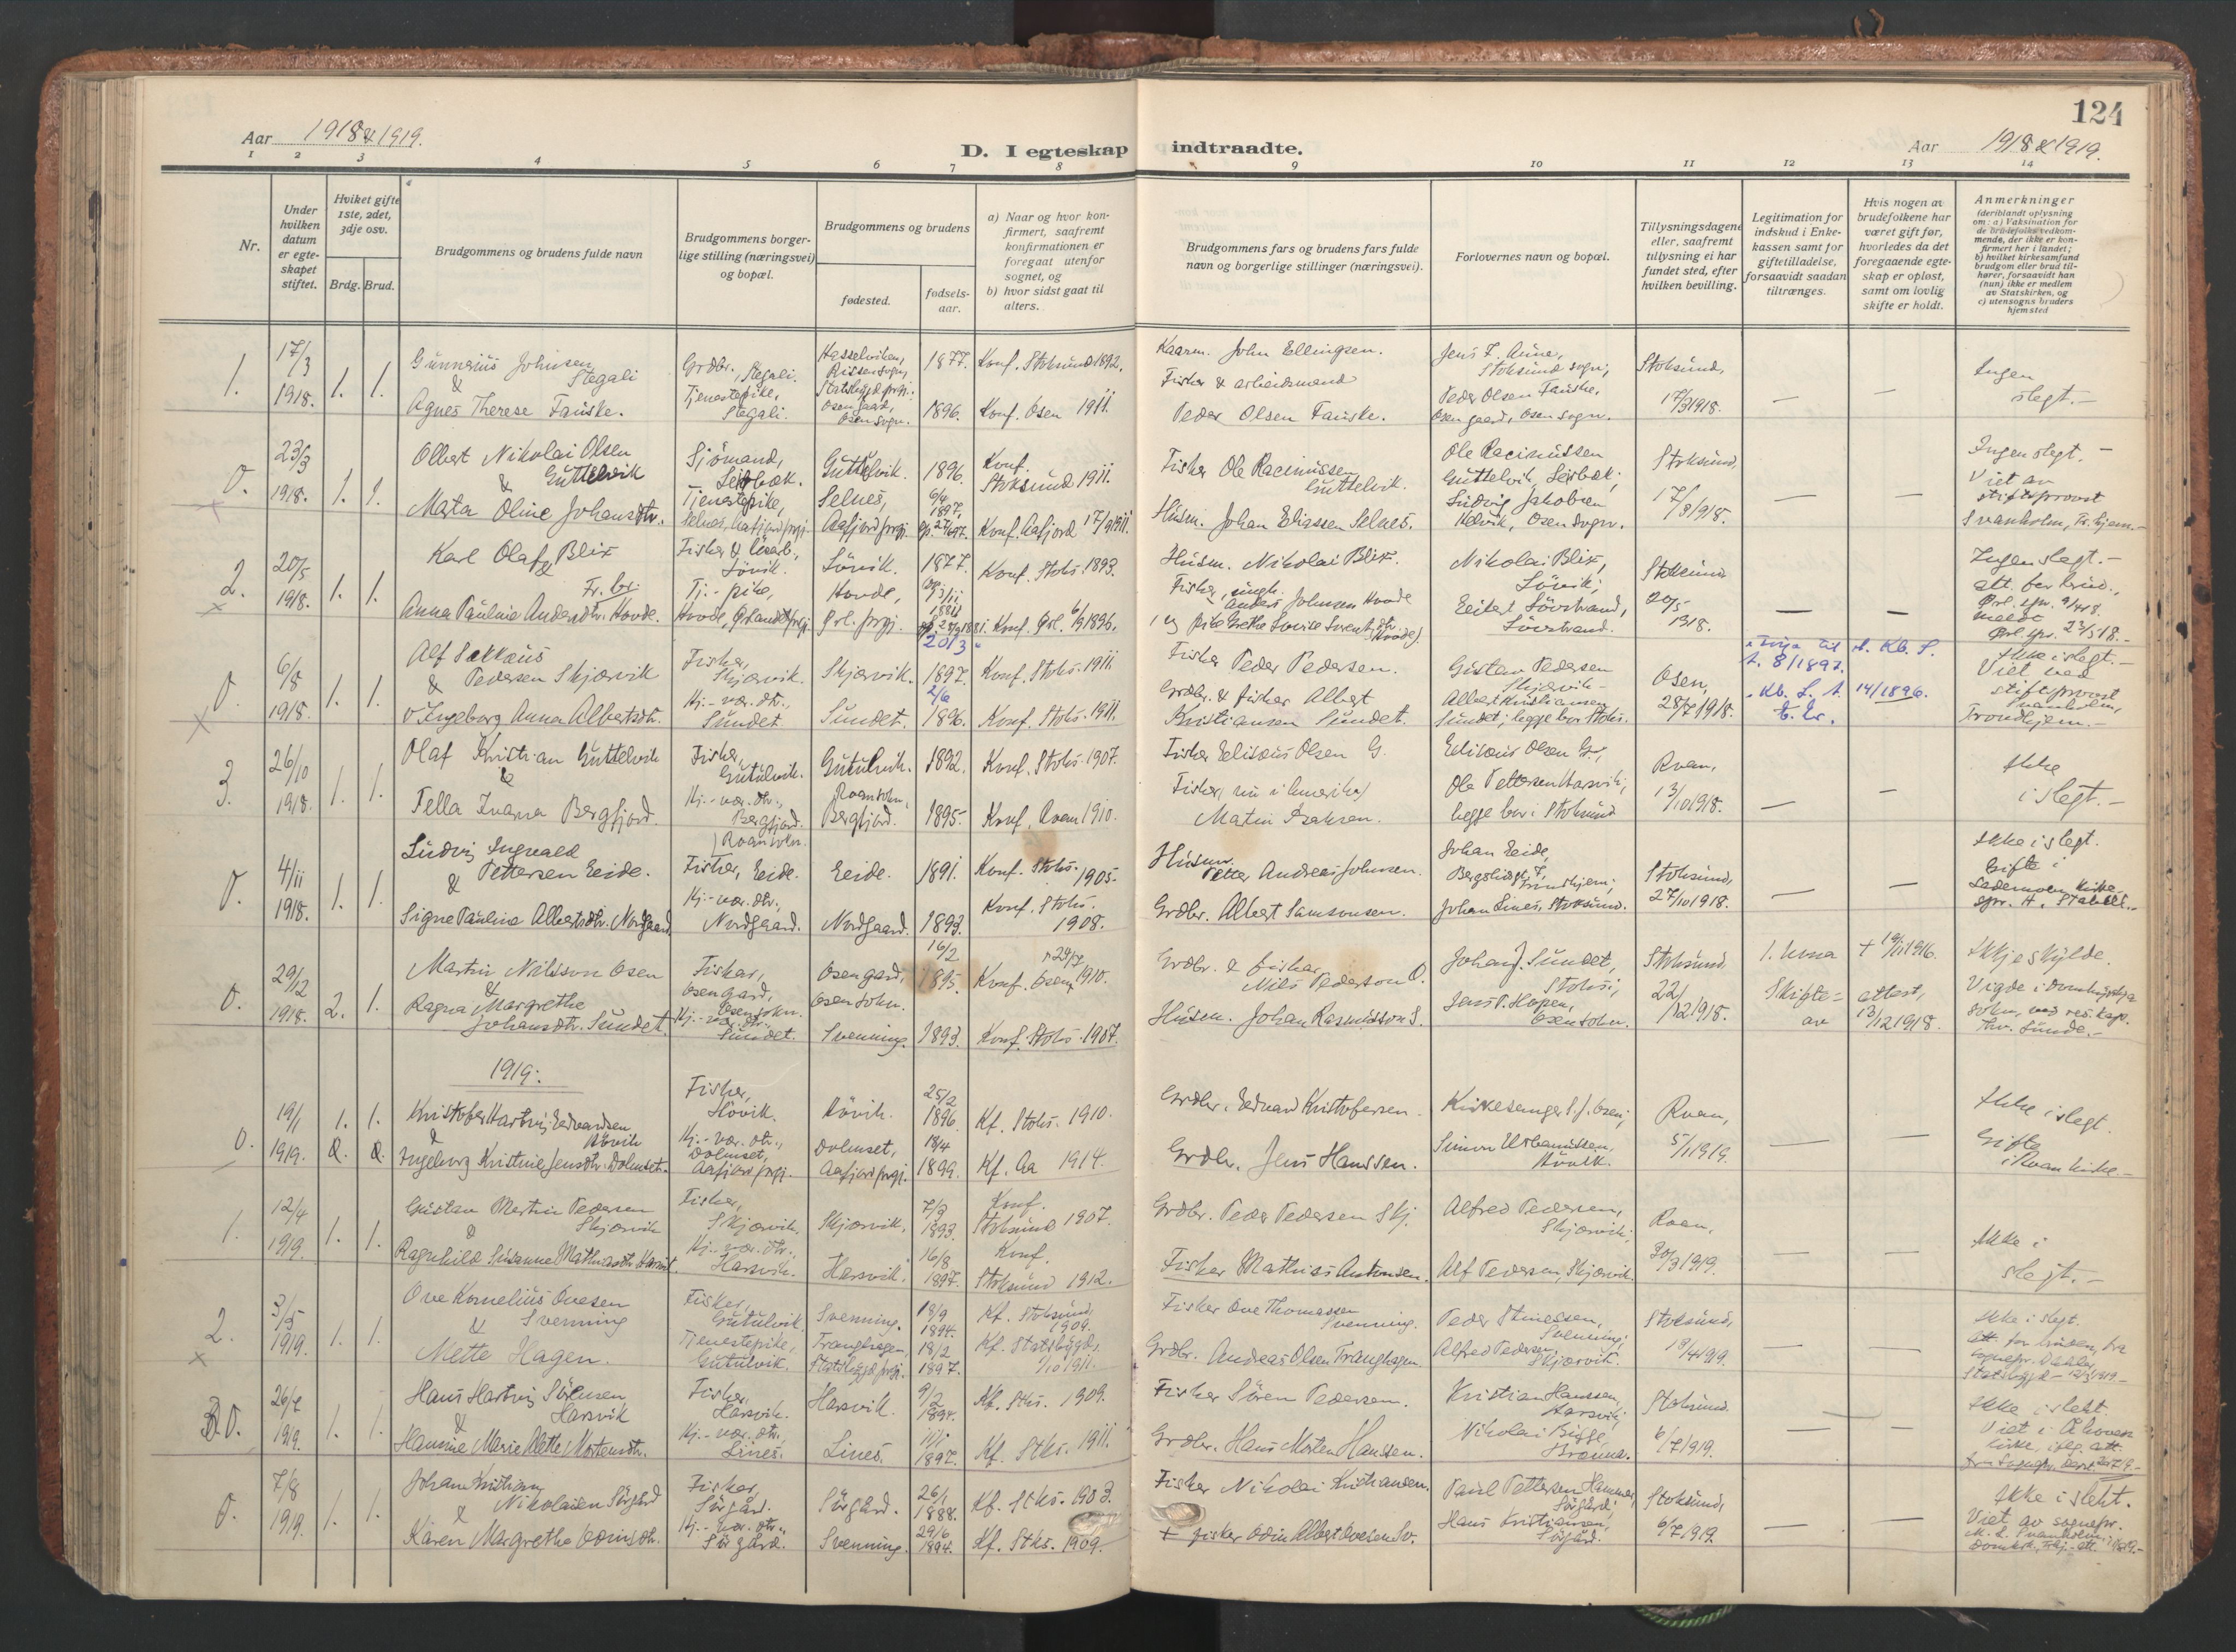 124
Aar 1918 & 1919.
D. I egteskap indtraadte.
Aar 1918 & 1919.
1 2 3 4 5 6 7 8 9 10 11 12 13 14
Nr.
Under hvilken datum er egteskapet stiftet.
Hviket gifte 1ste, 2det, 3dje osv.
Brdg. Brud.
Brudgommens og brudens fulde navn
Brudgommens borgerlige stilling (næringsvei) og bopæl.
Brudgommens og brudens
fødested.
fødselsaar.
a) Naar og hvor konfirmert, saafremt konfirmationen er foregaat utenfor sognet, og
b) hvor sidst gaat til alters.
Brudgommens fars og brudens fars fulde navn og borgerlige stillinger (næringsvei).
Forlovernes navn og bopæl.
Tillysningsdagene eller, saafremt tillysning ei har fundet sted, efter hvilken bevilling.
Legitimation for indskud i Enkekassen samt for giftetilladelse, forsaavidt saadan tiltrænges.
Hvis nogen av brudefolkene har været gift før, hvorledes da det foregaaende egteskap er opløst, samt om lovlig skifte er holdt.
Anmerkninger
(deriblandt oplysning om: a) Vaksination for de brudefolks vedkommende, der ikke er konfirmert her i landet;
b) hvilket kirkesamfund brudgom eller brud tilhører, forsaavidt han (nun) ikke er medlem av Statskirken, og
c) utensogns bruders hjemsted
1. 17/3 1918. 1. 1.
Gunnerius Johnsen Stegali
&
Agnes Therese Fauske.
Grdbr., Stegali.
Tjenestepike, Stegali.
Hasselviken, Rissen sogn, Statsbygd prgj.
Osen gaard, Osen sogn.
1877. 1896.
Konf. Stoksund 1892.
Konf. Osen 1911.
Kaarm. John Ellingsen.
Fisker & arbeidsmand
Peder Olsen Fauske.
Jens F. Aune, Stoksund sogn;
Peder Olsen Fauske, Osen gaard, Osen sogn.
Stoksund, 17/3 1918.
— —
Ingen slegt.—
0. 23/3 1918. 1. 1.
Olbert Nikolai Olsen Guttelvik
&
Marta Oline Johansdtr.
Sjömand,
Tjenestepike, Selnes, Aafjord prgj.
Guttelvik.
Selnes, Aafjord prgj.
1896. 6/4 1897.
Konf. Stoksund 1911.
Konf. Aafjord 17/9 1911.
Fisker Ole Racinussen Guttelvik.
Husm. Johan Eliassen Selnes.
Ole Racinussen Guttelvik,
Ludvig Jakobsen Kelvik, Osen sogn.
Stoksund, 17/3 1918.
— —
Ingen slegt. —
Viet av stiftsprovst Svanholm, Tr.hjem.—
2. 20/5 1918. 1. 1.
Karl Olaf Blix
&
Anna Pauline Andersdtr. Hovde.
Lövik.
Tj.- pike, Hovde,
Lövik.
Hovde, Ørl. prgj.
1877.
Konf. Stoks. 1893.
Konf. Ørl. 1896.
Husm. Nikolai Blix.
Fisker, ungk. Anders Johnsen Hovde
Nikolai Blix, Lövik;
Stoksund 20/5 1918.
— —
Ingen slegt.—
0. 6/8 1918. 1. 1.
Alf Sakkæus Pedersen Skjærvik
&
Ingeborg Anna Albertsdtr.
Fisker, Skjærvik.
Hj.-vær. dtr., Sundet.
Skjærvik.
Sundet.
20/3 1897. 2/6 1896.
Konf. Stoks. 1911.
Konf. Stoks. 1911.
Fisker Peder Pedersen.
Grdbr. & fisker Albert Kristiansen Sundet.
Gustav Pedersen Skjærvik—
Albert Kristiansen Sundet; begge bor Stoks.
Osen, 28/7 1918.
Kb. S. 8/1897.
Kb. S. 14/1896.
Ikke i slegt.—
Viet ved stiftsprovst Svanholm, Trondhjem.—
3. 26/10 1918. 1. 1.
Olaf Kristian Guttelvik
&
Tella Ivarna Bergfjord.
Fisker, Gutulvik.
Hj.-vær. dtr., Bergfjord. Roan sokn.
Gutulvik.
Roan sokn, Bergfjord.
1892. 1895.
Konf. Stoks. 1907.
Konf. Roan 1910.
Fisker Eliseus Olsen G.
Fisker, nu i Amerika,
Eliseus Olsen G.;
Ole Pettersen Harsvik; begge bor i Stoksund
Roan, 13/10 1918.
— —
Ikke i slegt.—
0. 4/11 1918. 1. 1.
Ludvig Ingvald Pettersen Eide.
&
Signe Pauline Albertsdtr. Nordgaard
Fisker, Eide.
Hj.-vær. dtr., Nordgaard.
Eide.
Nordgaard.
1891. 1893.
Konf. Stoks. 1905.
Konf. Stoks. 1908.
Husm. Petter Andreas Johnsen.
Grdbr. Albert Samsonsen.
Johan Eide, Trondhjem;
Johan Lines, Stoksund.
Stoksund, 27/10 1918.
— —
Ikke i slegt.
Gifte i Lademoen kirke
0. 29/12 1918. 2. 1.
Martin Nilsson Osen
&
Ragna Margrethe Johansdtr. Sundet.
Fisker, Osen gard, Osen sokn.
Hj.-vær. dtr., Sundet.
Osen gard, Osen sokn.
Svenning.
16/2 1895. 1893.
Konf. Osen 1910.
Konf. Stoks. 1907.
Grdbr. & fisker Nils Pederson O.
Husm. Johan Rasmusson S.
Johan J. Sundet, Stoks.;
Jens P. Hopen, Osen sokn.
Stoksund 22/12 1918.
Skifte- attest, av 13/12 1918.
Ikkje skylde.
1919:
0. 19/1 1919. 1. 1.
Kristofer Hartvig Edvardsen Hövik
&
Ingeborg Kristine Jensdtr. Dolmset.
Fisker, Hövik.
Hj.-vær. dtr., Dolmset, Aafjord prgj.
Hövik.
Dolmset, Aafjord prgj.
25/2 1896. 18/4 1899.
Kf. Stoks. 1910.
Kf. Aa 1914.
Grdbr. Edvard Kristofersen.
Grdbr. Jens Hanssen.
Kirkesanger S. J. Osen;
Simon Urbanussen, Hövik.
Roan, 5/1 1919.
— —
Ikke i slegt.
Gifte i Roan kirke.—
1. 12/4 1919. 1. 1.
Gustav Martin Pedersen Skjærvik
&
Ragnhild Susanne Mathiasdtr. Harsvik.
Fisker, Skjærvik.
Hj.-vær. dtr., Harsvik.
Skjærvik.
Harsvik.
7/3 1893. 16/8 1897.
Konf. Stoksund 1907.
Konf. Stoksund 1912.
Grdbr. Peder Pedersen Skj.
Fisker Mathias Antonsen.
Alfred Pedersen, Skjærvik;
Alf Pedersen, Skjærvik.
Roan, 30/3 1919.
— —
Ikke i slegt.—
2. 3/5 1919. 1. 1.
Ove Kornelius Ovesen Svenning
&
Mette Hagen.
Fisker, Gutulvik.
Tjenestepike, Gutulvik.
Svenning.
Tranghagen, Statsbygd prgj.
18/9 1894. 18/2 1897.
Kf. Stoksund, 1909.
Kf. Statsbygd, 1/10 1911.
Fisker Ove Thomassen Svenning.
Grdbr. Andreas Olsen Tranghagen.
Alfred Pedersen, Skjærvik.
Stoksund, 19/4 1919.
— —
Ikke i slegt.
0. 26/7 1919. 1. 1.
Hans Hartvig Sörensen Harsvik
&
Hansine Marie Alette Mortensdtr.
Fisker, Harsvik.
Hj.-vær. dtr., Lines.
Harsvik.
Lines.
9/2 1894. 1897.
Kf. Stks. 1909.
Kf. Stks. 1911.
Fisker Sören Pedersen.
Grdbr. Hans Morten Hanssen.
Kristian Hanssen, Harsvik;
Stoksund 6/7 1919.
— —
Ikke i slekt.
0. 7/8 1919. 1. 1.
Johan Kristian Nikolaisen Sörgård
&
Karen Margrethe Odinsdtr.
Fisker, Sörgård.
Hj.-vær. dtr., Sörgård.
Sörgård.
Svenning.
26/1 1888. 29/6 1894.
Kf. Stks. 1903.
Kf. Stks. 1909.
Fisker Nikolai Kristiansen.
+ fisker Odin Albert Ovesen Sv.
Paul Pettersen Hammer, Sörgård;
Hans Kristiansen, Sörgård.
Stoksund, 6/7 1919.
— —
Ikke i slekt.
Viet av sognepr.